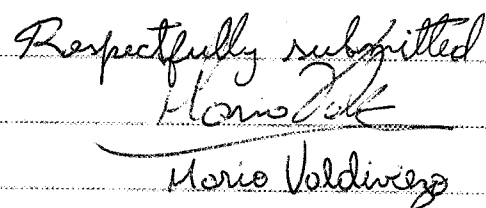 Respectfully submitted
Mario Valdiviezo